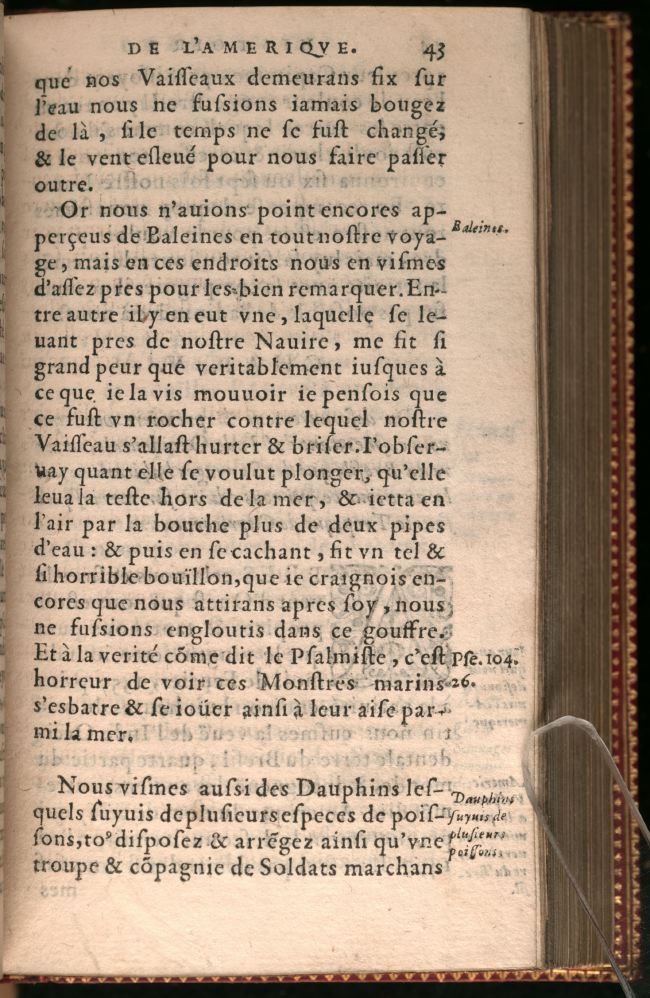 DE L'AMERIQVE. 43
que nos Vaiſſeaux demeurans fix ſur
l'eau nous ne fuſsions iamais bougez
de là, ſi le temps ne ſe fuſt changé,
& le vent esleué pour nous faire paſſer
outre.
Or nous n'auions point encores ap-
perçeus de Baleines en tout noſtre voya-
ge, mais en ces endroits nous en viſmes
d'aſſez pres pour les bien remarquer. En-
tre autre il y en eut vne, laquelle ſe le-
uant pres de noſtre Nauire, me fit ſi
grand peur que veritablement iuſques à
ce que ie la vis mouuoir ie penſois que
ce fuſt vn rocher contre lequel noſtre
Vaiſſeau s'allaſt hurter & briſer. I'obſer-
uay quant elle ſe voulut plonger, qu'elle
leua la teſte hors de la mer, & ietta en
l'air par la bouche plus de deux pipes
d'eau : & puis en ſe cachant, fit vn tel &
ſi horrible bouïllon, que ie craignois en-
cores que nous attirans apres ſoy, nous
ne fuſsions engloutis dans ce gouffre.
Et à la verité cõme dit le Pſalmiſte, c'eſt
horreur de voir ces Monſtres marins
s'esbatre & ſe ioüer ainſi à leur aiſe par-
mi la mer.
Nous viſmes auſsi des Dauphins leſ-
quels ſuyuis de pluſieurs eſpeces de poiſ-
ſons, toꝰ diſpoſez & arrẽgez ainſi qu'vne
troupe & cõpagnie de Soldats marchans
Baleines.
Pſe. 104.
26.
Dauphins
ſuyuis de
pluſieurs
poiſſons.
mes